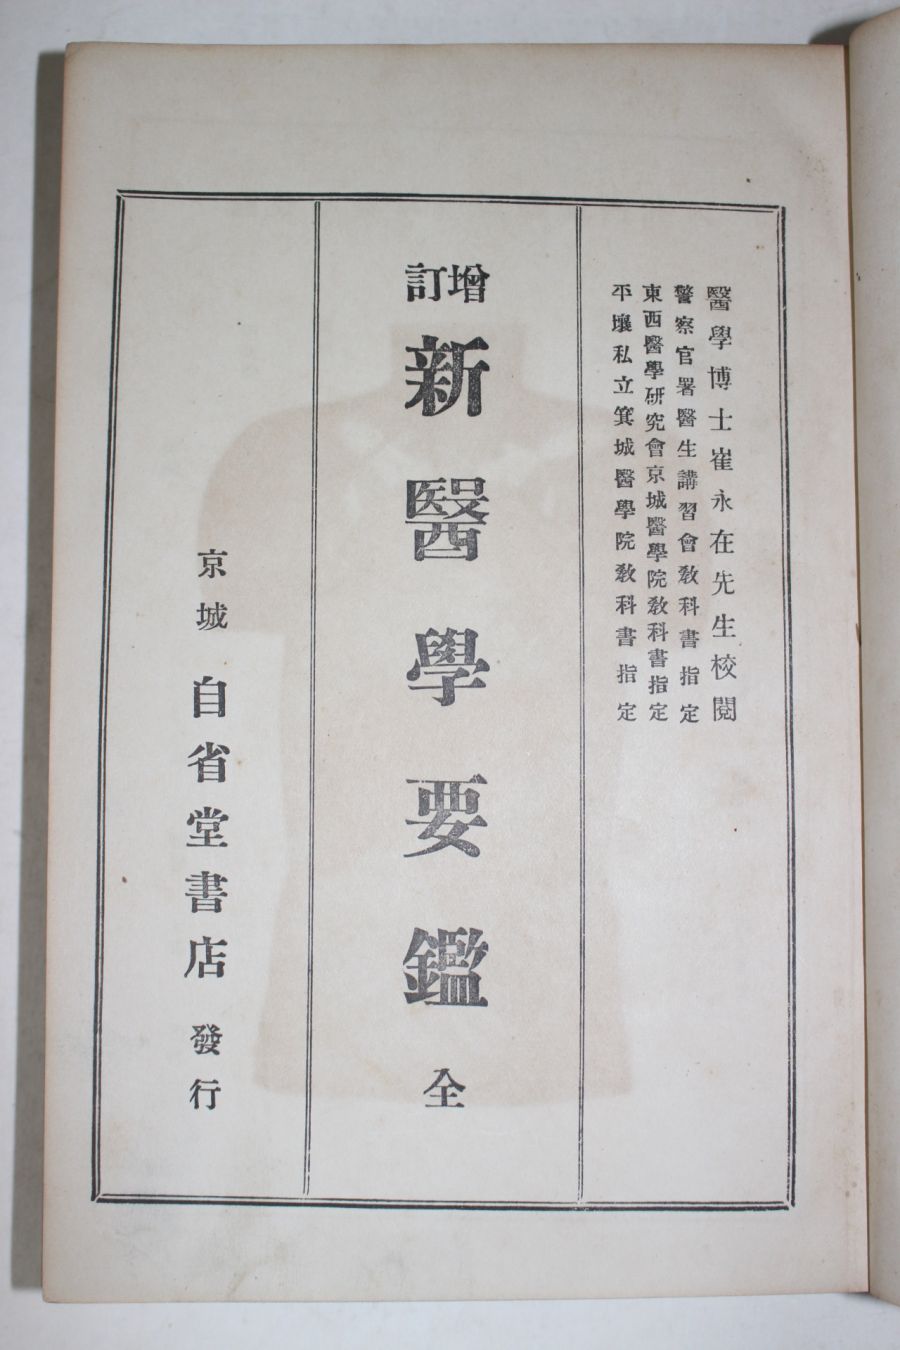 醫學博士崔永在先生校閱
警察官署醫生講習會敎科書指定
東西醫學硏究會京城醫學院敎科書指定
平壤私立箕城醫學院敎科書指定
增訂
新醫學要鑑 全
京城 自省堂書店 發行